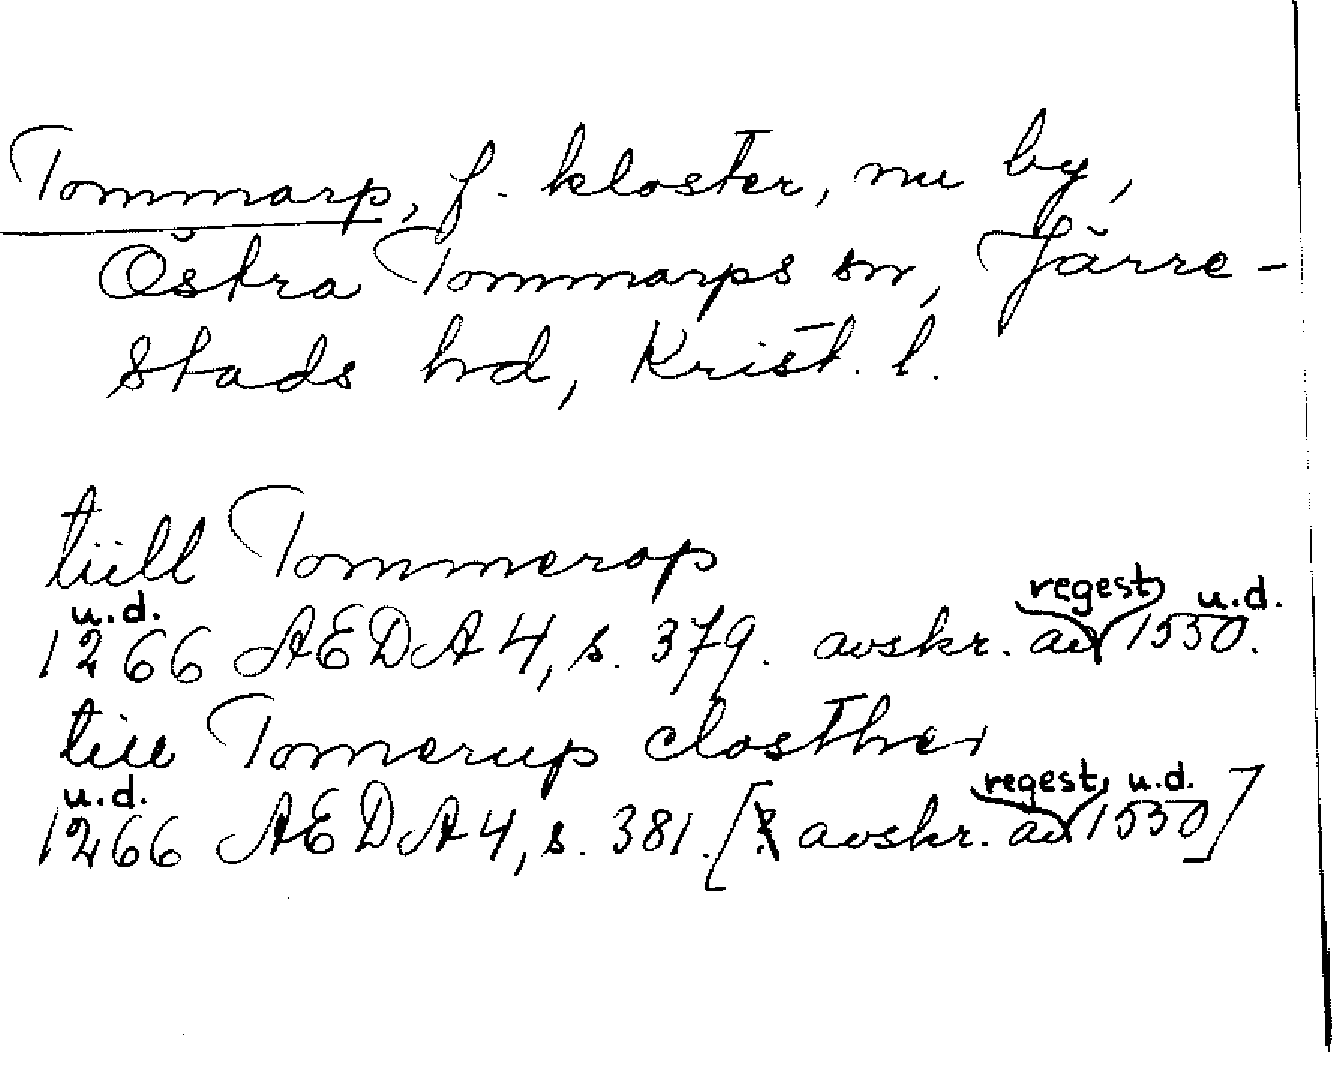 Tommarp, f. kloster, nu by,
Östra Tommarps sn, Järre-
stads hd, Krist. l.
tiill Tommerop
u.d. regest u.d.
1266 AEDA 4, s. 379. avskr. av 1550.
till Tomerup closther
u.d. regest u.d.
1266 AEDA 4, s. 381. [ avskr. av 1550]